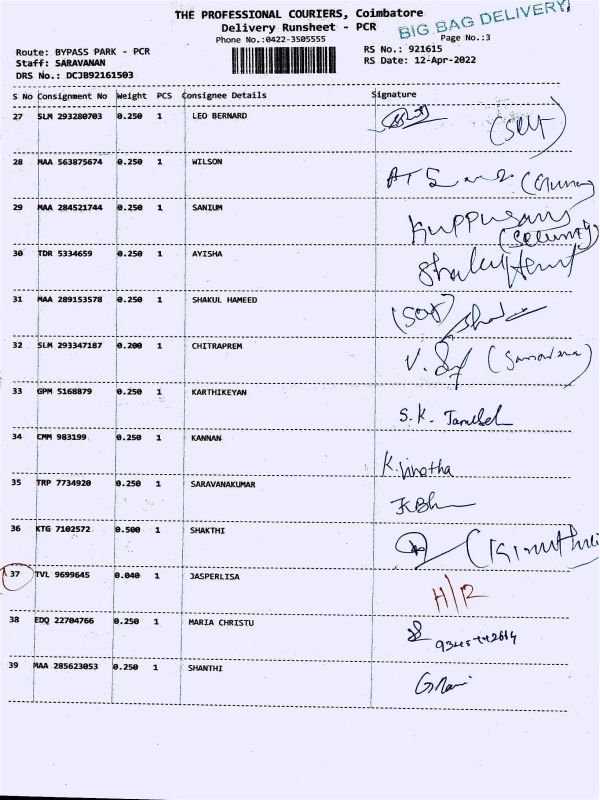 THE PROFESSIONAL COURIERS, Coimbatore
BIG BAG DELIVERY
Delivery Runsheet - PCR
Phone No.:0422-3505555
Page No.:3
Route: BYPASS PARK - PCR
RS No.: 921615
Staff: SARAVANAN
RS Date: 12-Apr-2022
DRS No.: DCJB92161503
S No Consignment No Weight PCS Consignee Details Signature
27 SLM 293280703 0.250 1 LEO BERNARD
28 MAA 563875674 0.250 1 WILSON
29 MAA 284521744 0.250 1 SANIUM Kuppusamy
(Security)
30 TDR 5334659 0.250 1 AYISHA
31 MAA 289153578 0.250 1 SHAKUL HAMEED
32 SLM 293347187 0.200 1 CHITRAPREM
33 GPM 5168879 0.250 1 KARTHIKEYAN S.K.
34 CMM 983199 0.250 1 KANNAN K.Vinotha
35 TRP 7734920 0.250 1 SARAVANAKUMAR
36 KTG 7102572 0.500 1 SHAKTHI
37 TVL 9699645 0.040 1 JASPERLISA H/R
38 EDQ 22704766 0.250 1 MARIA CHRISTU
39 MAA 285623053 0.250 1 SHANTHI